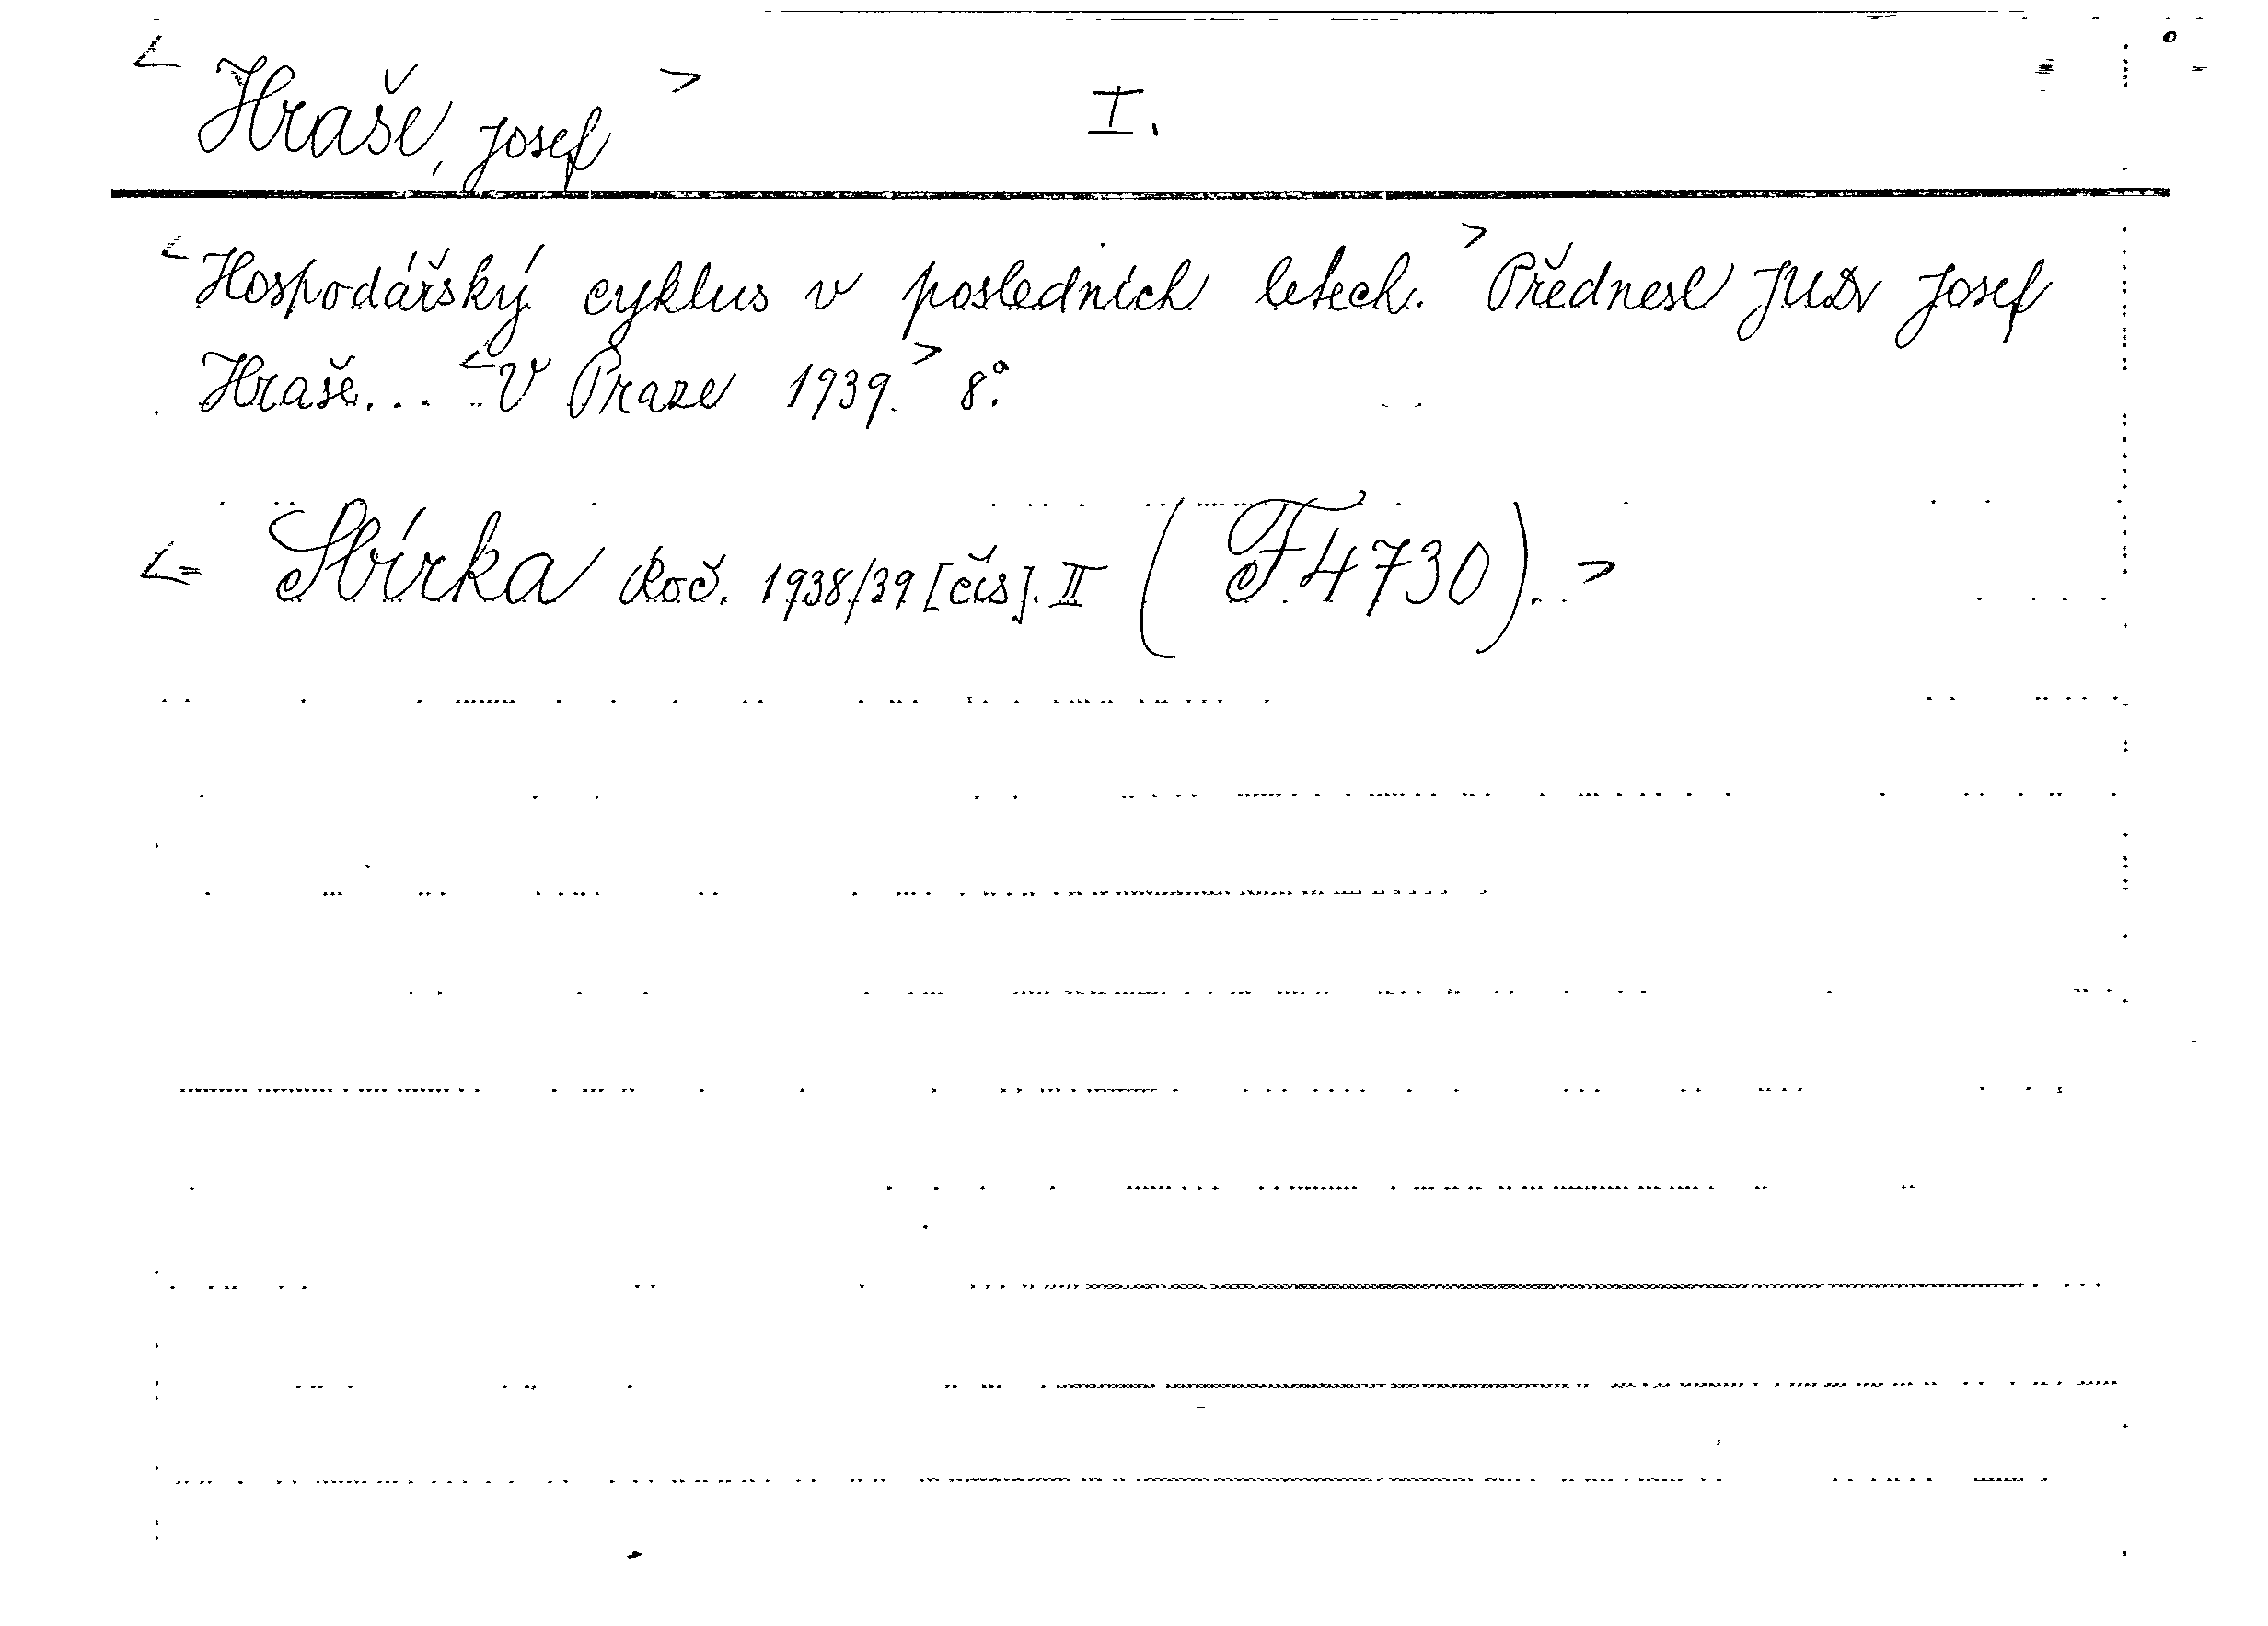 < Hraše, Josef > I.
< Hospodářský cyklus v posledních letech. > Přednesl JUDr Josef
Hraše... < V Praze 1939. > 8°.
<= Sbírka Roč. 1938/39 [čís]. II (F 4730). >